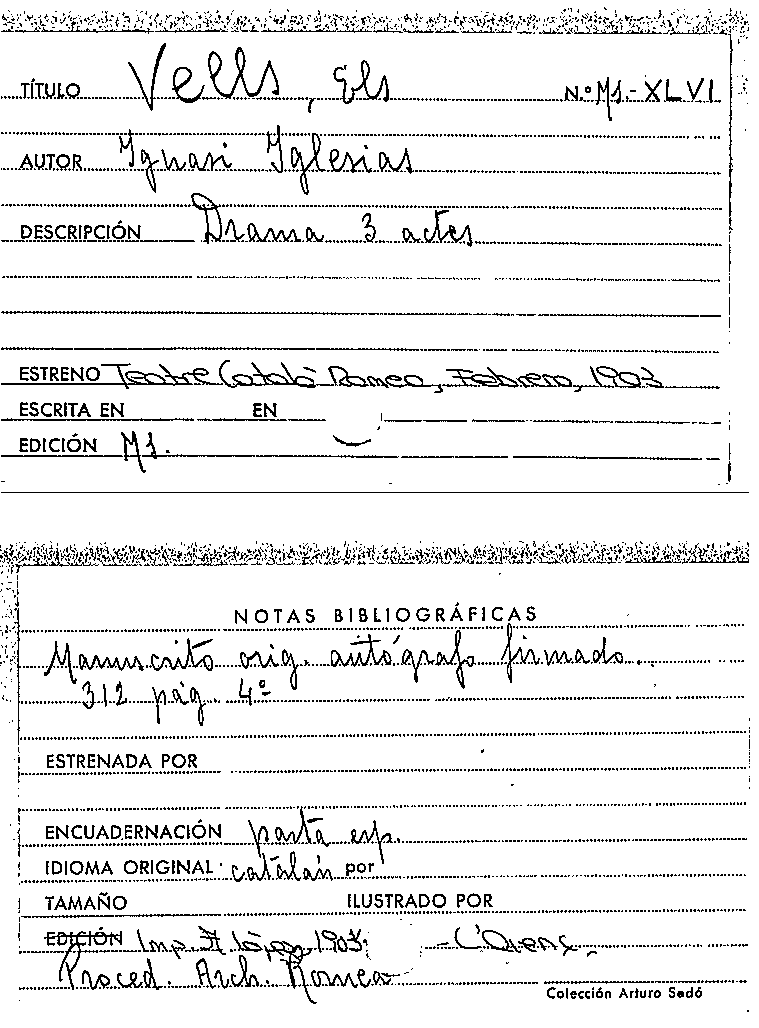 TÍTULO Vells, Els N.º Ms.-XLVI
AUTOR Ignasi Iglesias
DESCRIPCIÓN Drama 3 actes
ESTRENO Teatre Català Romea, Febrero, 1903
ESCRITA EN EN
EDICIÓN Ms.
NOTAS BIBLIOGRÁFICAS
Manuscrito orig. autógrafo firmado.
312 pág. 4º
ESTRENADA POR
ENCUADERNACIÓN pasta esp.
IDIOMA ORIGINAL catalán por
TAMAÑO ILUSTRADO POR
EDICIÓN Imp. A. López 1903; - L'Avenç.
Proced. Arch. Romea
Colección Arturo Sedó